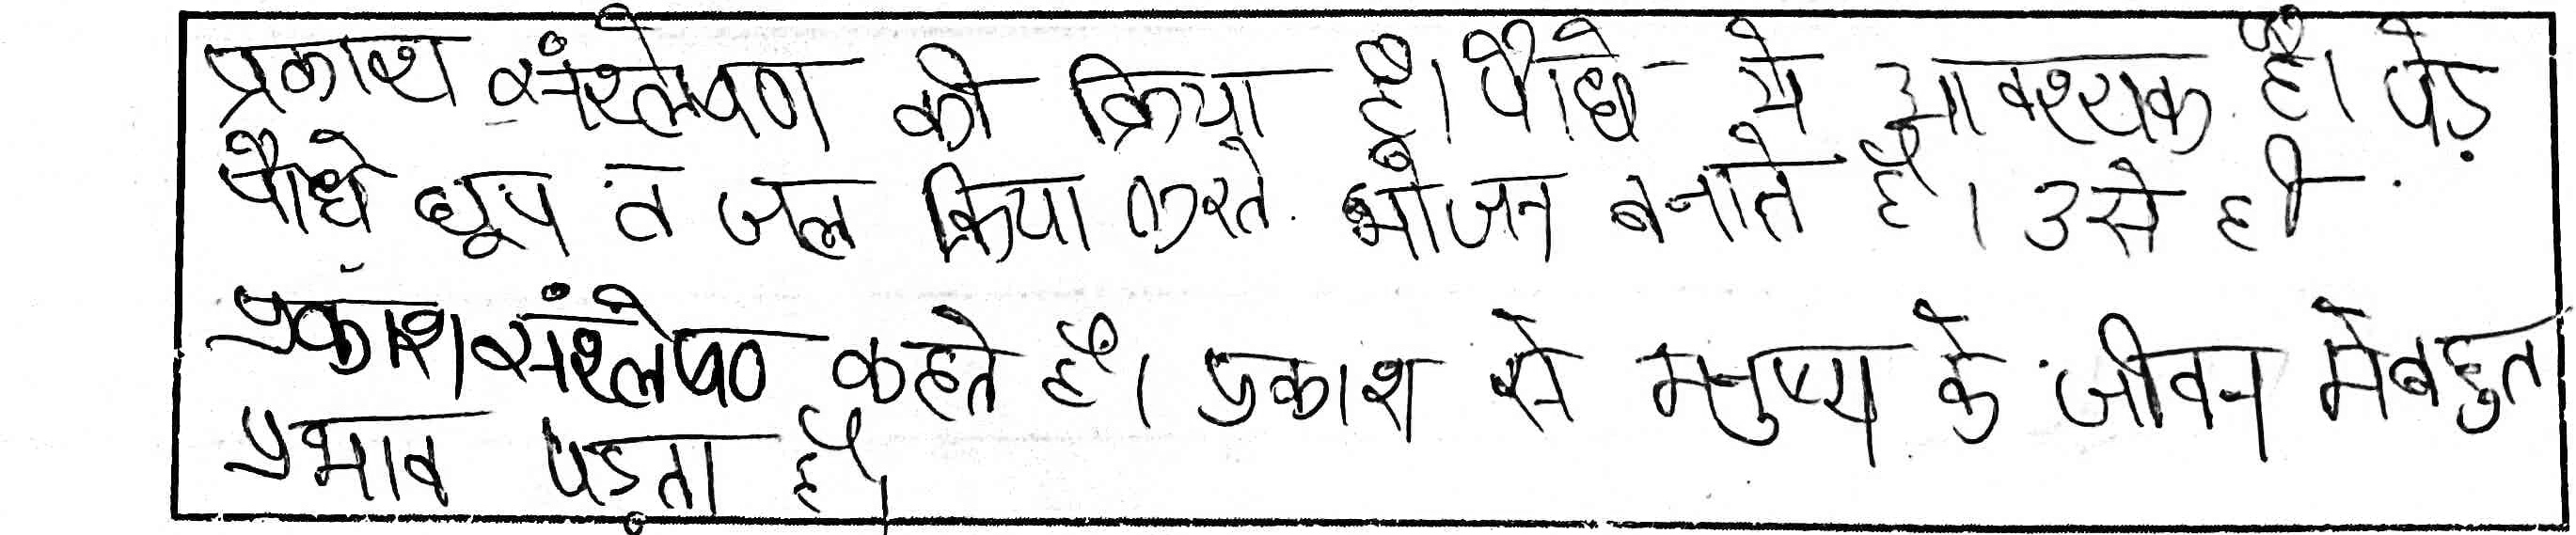 प्रकाश संश्लेषण की क्रिया है। पौधे मे आवश्यक है। पेड़
पौधे धूप व जल क्रिया करते भोजन बनाते है। उसे ही
प्रकाश संश्लेषण कहते है। प्रकाश से मनुष्य के जीवन मे बहुत
प्रभाव पडता है।